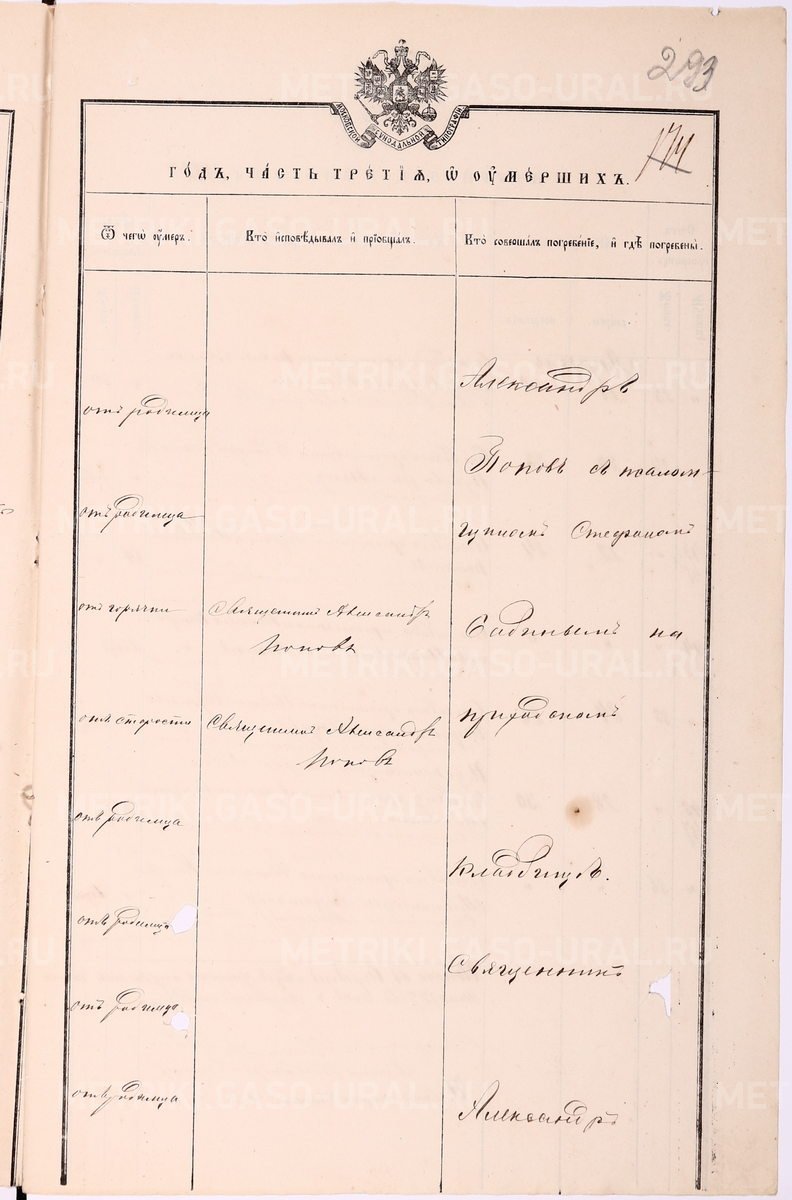 293
174
МОСКОВСКОЙ СѴНОДАЛЬНОЙ ТИПОГРАФІИ
ГОДЪ, ЧАСТЬ ТРЕТІЯ, Ѽ ОУМЕРШИХЪ.
Ѿ чегѡ оумеръ.
Кто исповѣдывалъ и прїобщалъ.
Кто совершалъ погребенїе, и гдѣ погребены.
Александръ
отъ родимца
Поповъ съ псалом-
отъ родимца
щикомъ Стефаномъ
отъ горячки
Священникъ Александръ
Поповъ
на
отъ старости
Священникъ Александръ
Поповъ
приходскомъ
отъ родимца
кладбищѣ.
отъ родимца
Священникъ
отъ родимца
отъ родимца
Александръ
METRIKI.GASO-URAL.RU